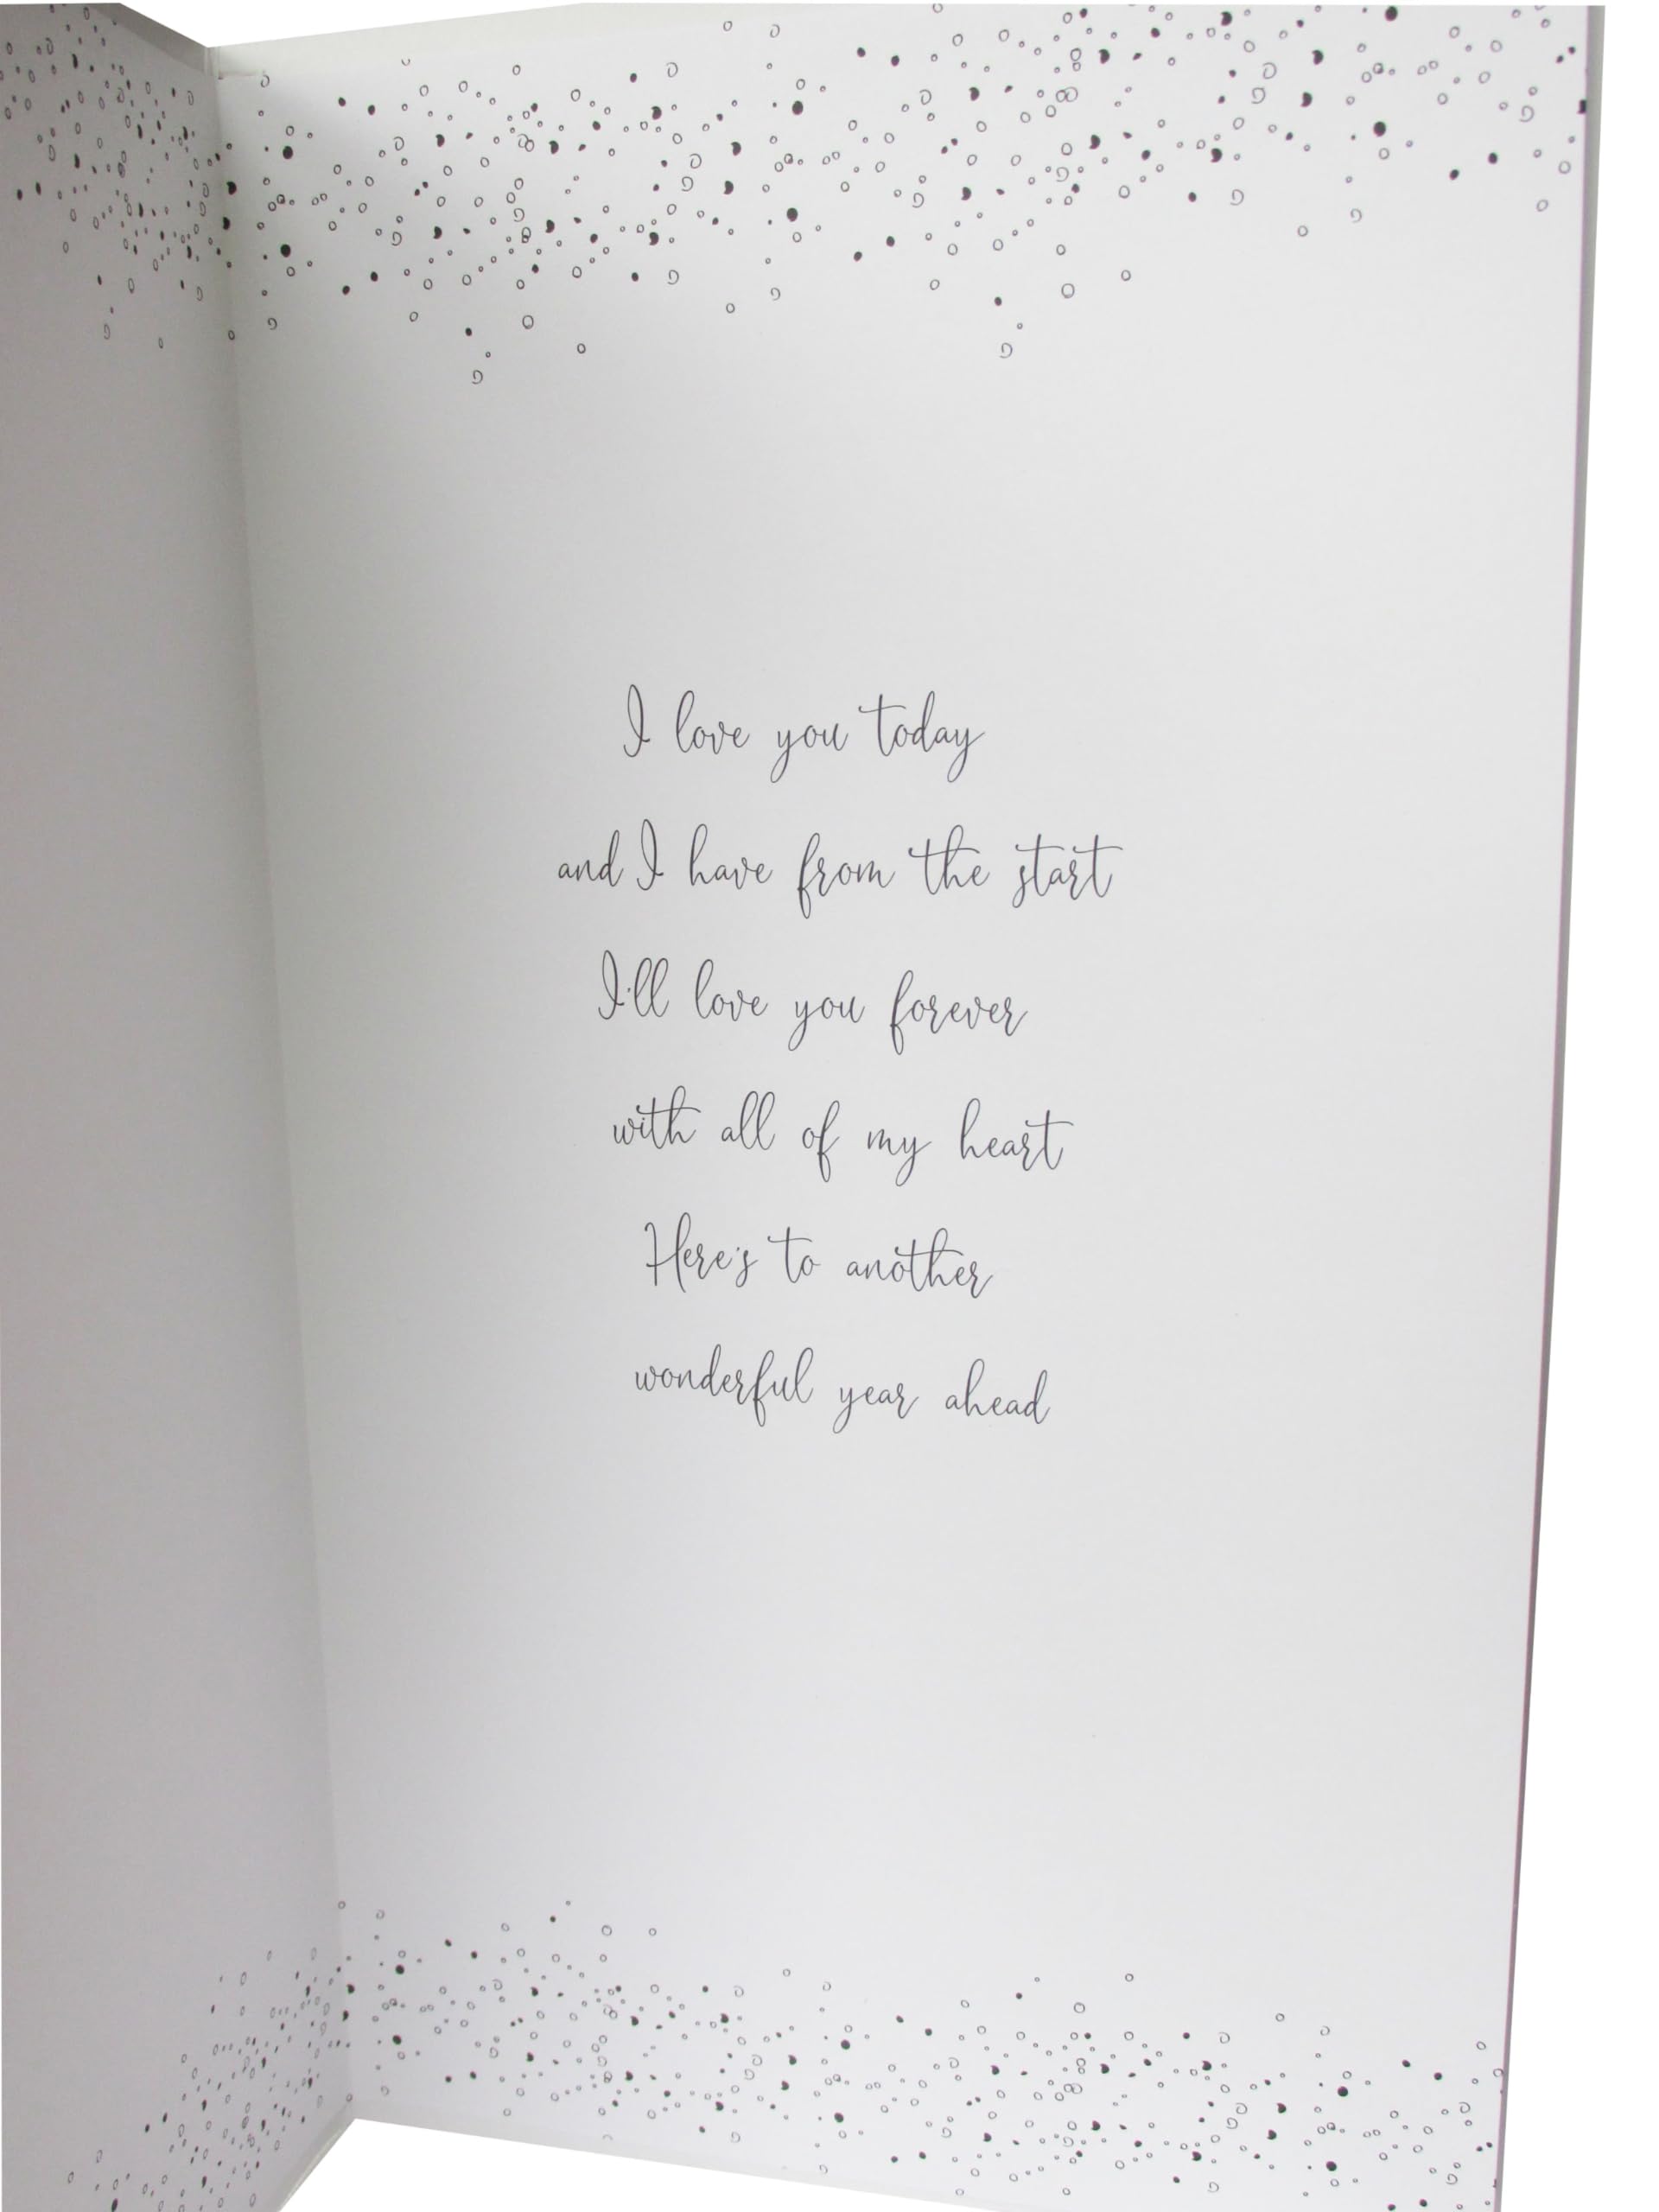 I love you today
and I have from the start
I'll love you forever
with all of my heart
Here's to another
wonderful year ahead